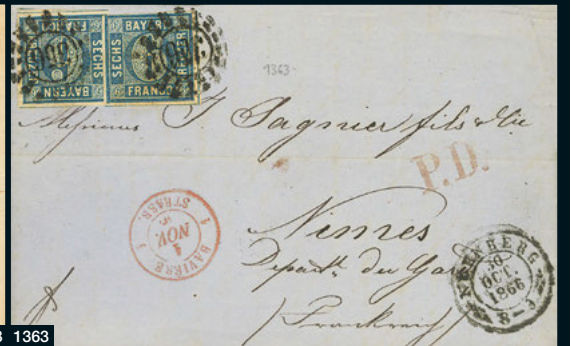 BAYERN
SECHS
FRANCO
BAYERN
SECHS
FRANCO
1363
Messieurs J Sagnier fils & Cie
P.D.
Nimes
Departt. du Gard
(Frankreich)
BAVIERE
STRASB.
1
NOV.
1
NÜRNBERG
30
OCT.
1866
8-9
1363